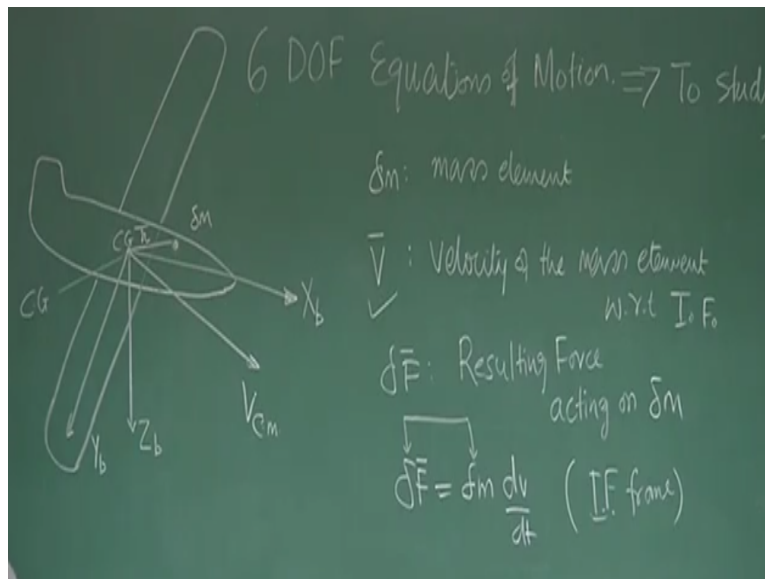 6 DOF Equations of Motion. ⇒ To Stud
δm: mass element
V̄ : Velocity of the mass element
w.r.t I. F.
δF̄: Resulting Force
acting on δm
δF̄ = δm dv/dt (I.F. frame)
δm
CG r̄
CG
X_b
V_cm
Z_b
Y_b